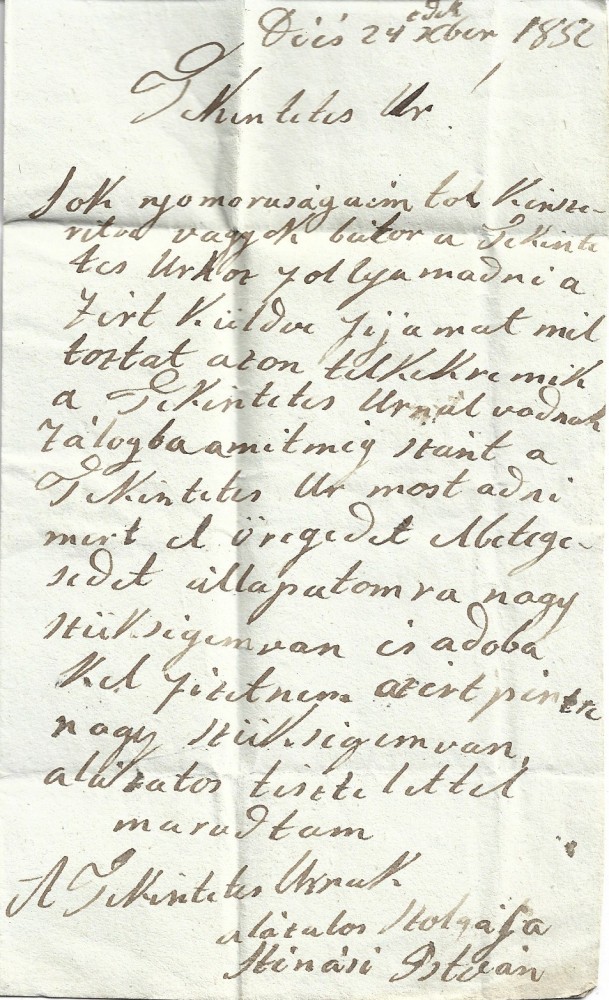 Deés 24edik Xber 1852
Tekintetes Ur!
Sok nyomoruságaim tol kinsze-
ritve vagyok bátor a Tekinte
tes Urhoz follyamadni a
zirt küldve fijamat mil
toztat azon telkekre mik
a Tekintetes Urnál vadnak
zálogba amit mig szánt a
Tekintetes Ur most adni
mert el öregedet elbetege-
sedet állapatomra nagy
szüksigem van és adoba
kel fizetnem azirt pinzre
nagy szüksigem van,
alázatos tisztelettel
maradtam
A Tekintetes Urnak
alázatos szolgája
István